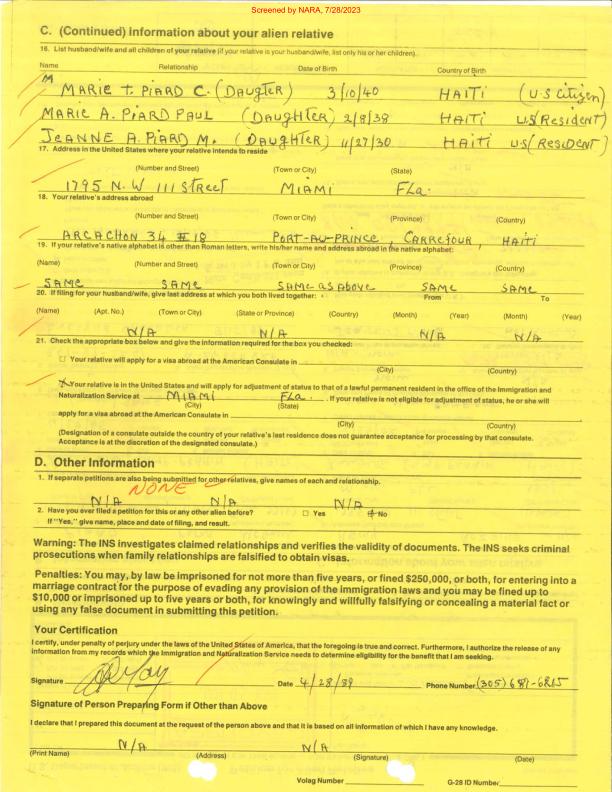 Screened by NARA, 7/28/2023
C. (Continued) Information about your alien relative
16. List husband/wife and all children of your relative (if your relative is your husband/wife, list only his or her children).
Name Relationship Date of Birth Country of Birth
M
MARIE T. PIARD C. (DAUgTER) 3/10/40 HAITI (U.S Citizen)
MARIE A. PIARD PAUL (DAUgHTER) 2/8/38 HAITI U.S(Resident)
JEANNE A. PIARD M. (DAUgHTER) 11/27/30 HAITI U.S(RESIDENT)
17. Address in the United States where your relative intends to reside
(Number and Street) (Town or City) (State)
1795 N.W 111 Street MIAMI FLa.
18. Your relative's address abroad
(Number and Street) (Town or City) (Province) (Country)
ARCACHON 34 # 18 PORT-AU-PRINCE, CARREfOUR, HAITI
19. If your relative's native alphabet is other than Roman letters, write his/her name and address abroad in the native alphabet:
(Name) (Number and Street) (Town or City) (Province) (Country)
SAME SAME SAME as Above SAME SAME
20. If filing for your husband/wife, give last address at which you both lived together: From To
(Name) (Apt. No.) (Town or City) (State or Province) (Country) (Month) (Year) (Month) (Year)
N/A N/A N/A N/A
21. Check the appropriate box below and give the information required for the box you checked:
☐ Your relative will apply for a visa abroad at the American Consulate in
(City) (Country)
X Your relative is in the United States and will apply for adjustment of status to that of a lawful permanent resident in the office of the Immigration and
Naturalization Service at MIAMI FLa. . If your relative is not eligible for adjustment of status, he or she will
(City) (State)
apply for a visa abroad at the American Consulate in
(City) (Country)
(Designation of a consulate outside the country of your relative's last residence does not guarantee acceptance for processing by that consulate.
Acceptance is at the discretion of the designated consulate.)
D. Other Information
1. If separate petitions are also being submitted for other relatives, give names of each and relationship.
NONE
N/A N/A N/A
2. Have you ever filed a petition for this or any other alien before? ☐ Yes ☒ No
If "Yes," give name, place and date of filing, and result.
Warning: The INS investigates claimed relationships and verifies the validity of documents. The INS seeks criminal
prosecutions when family relationships are falsified to obtain visas.
Penalties: You may, by law be imprisoned for not more than five years, or fined $250,000, or both, for entering into a
marriage contract for the purpose of evading any provision of the immigration laws and you may be fined up to
$10,000 or imprisoned up to five years or both, for knowingly and willfully falsifying or concealing a material fact or
using any false document in submitting this petition.
Your Certification
I certify, under penalty of perjury under the laws of the United States of America, that the foregoing is true and correct. Furthermore, I authorize the release of any
information from my records which the Immigration and Naturalization Service needs to determine eligibility for the benefit that I am seeking.
Signature Date 4/28/89 Phone Number (305) 681-6815
Signature of Person Preparing Form if Other than Above
I declare that I prepared this document at the request of the person above and that it is based on all information of which I have any knowledge.
N/A N/A
(Print Name) (Address) (Signature) (Date)
Volag Number G-28 ID Number